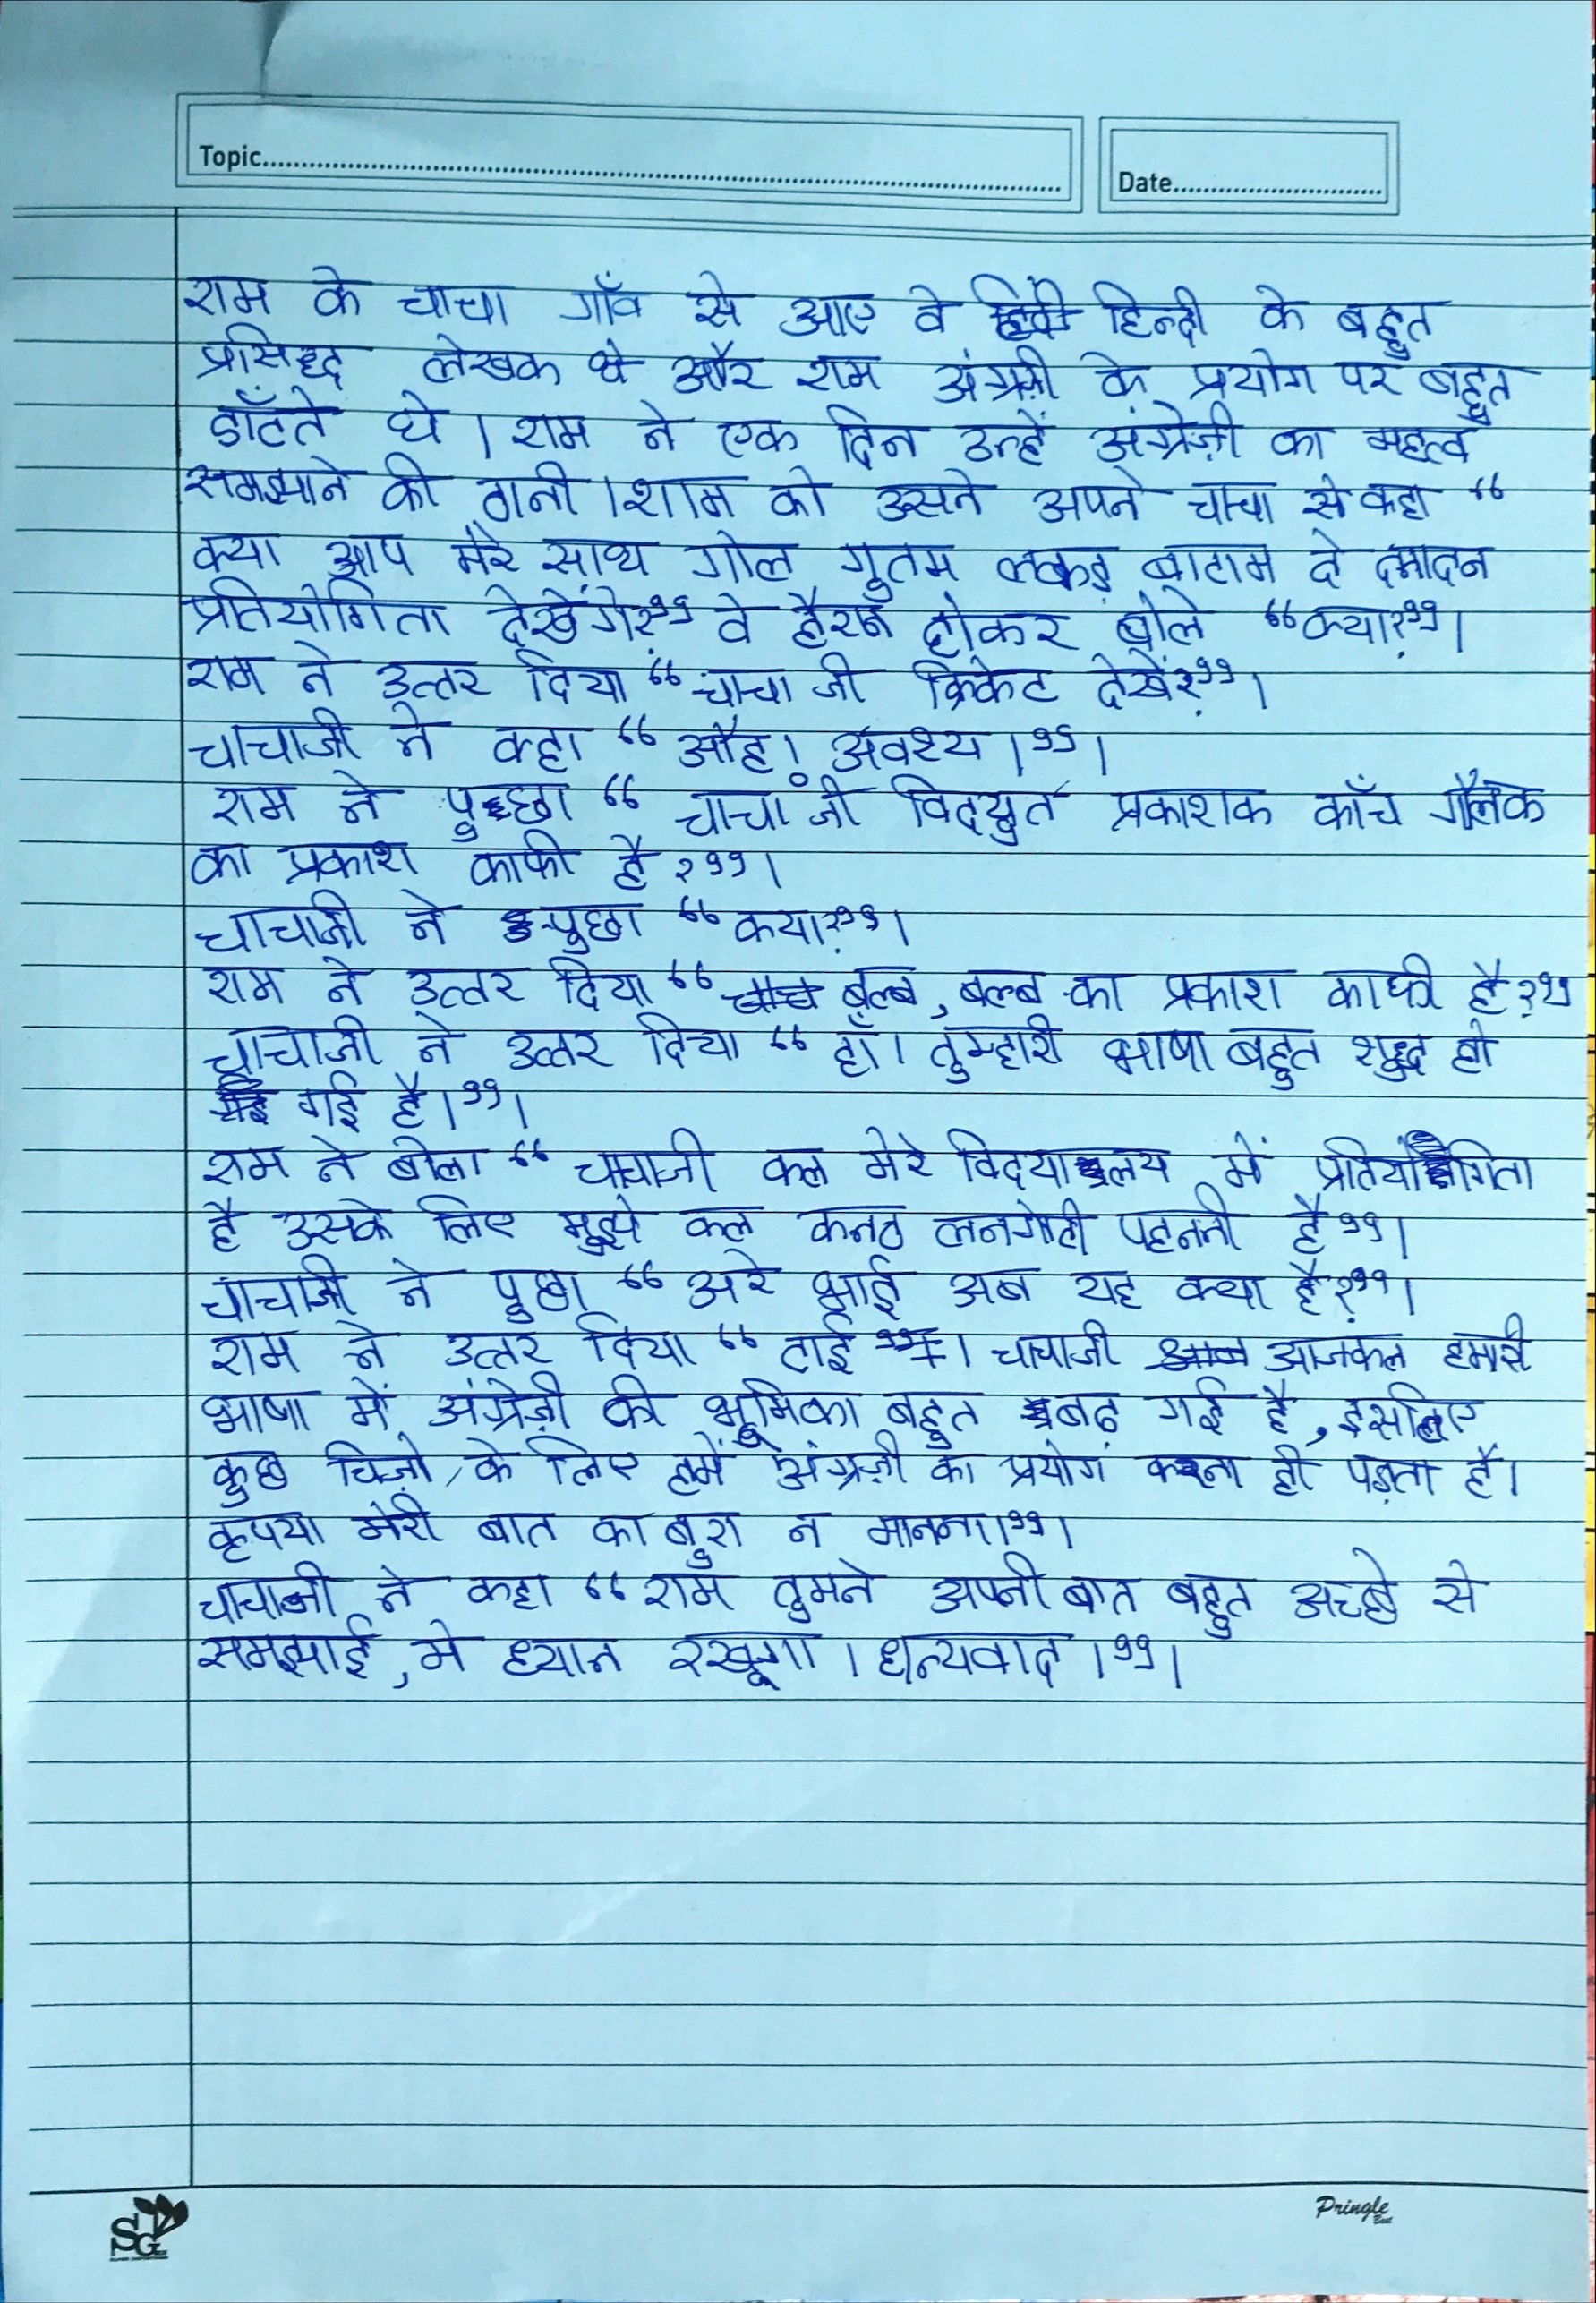 Topic
Date
राम के चाचा गाँव से आए वे हिन्दी के बहुत
प्रसिद्ध लेखक थे और राम अंग्रज़ी के प्रयोग पर बहुत
डाँटते थे । राम ने एक दिन उन्हें अंग्रेज़ी का महत्व
समझाने की ठानी । शाम को उसने अपने चाचा से कहा “
क्या आप मेरे साथ गोल गुतम लकड़ बाटाम दे दमादन
प्रतियोगिता देखेंगे?” वे हैरान होकर बोले “क्या?”।
राम ने उत्तर दिया “चाचा जी क्रिकेट देखें?”।
चाचाजी ने कहा “औह! अवश्य ।”।
राम ने पुछा “ चाचा जी विद्युत प्रकाशक काँच गौलक
का प्रकाश काफी है ?”।
चाचाजी ने पुछा “कया?”।
राम ने उत्तर दिया “ बल्ब, बल्ब का प्रकाश काफी है?”
चाचाजी ने उत्तर दिया “ हाँ। तुम्हारी भाषा बहुत शुद्ध हो
गई है।”।
राम ने बोला “ चाचाजी कल मेरे विद्यालय में प्रतियोगिता
है उसके लिए मुझे कल कनठ लनगोटी पहननी है”।
चाचाजी ने पुछा “ अरे भाई अब यह क्या है?”।
राम ने उत्तर दिया “ टाई । चाचाजी आजकल हमारी
भाषा में अंग्रेज़ी की भूमिका बहुत बढ़ गई है, इसलिए
कुछ चिज़ो के लिए हमें अंग्रज़ी का प्रयोग करना ही पड़ता है।
कृपया मेरी बात का बुरा न मानना।”।
चाचाजी ने कहा “राम तुमने अपनी बात बहुत अच्छे से
समझाई, मे ध्यान रखूगा । धन्यवाद ।”।
SG
Pringle